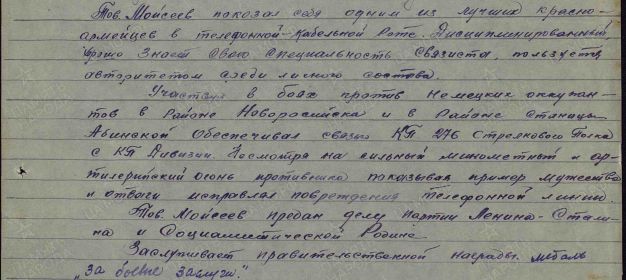 Тов. Мойсеев показал себя одним из лучших красно-
армейцев в телефонной-Кабельной Роте. Дисциплинированный,
хорошо Знает Свою Специальность Связиста, пользуется
авторитетом среди личного состава.
Участвуя в боях против немецких оккупан-
тов в Районе Новоросийска и в Районе Станицы
Абинской Обеспечивал связью КП 276 Стрелкового Полка
с КП Дивизии. Несмотря на сильный минометный и ар-
тилерийский огонь противника показывая пример мужества
и отваги исправлял повреждения телефонной линии.
Тов. Мойсеев предан делу партии Ленина-Стали-
на и Социалистической Родине
Заслуживает правительственной награды медаль
"За боевые заслуги."